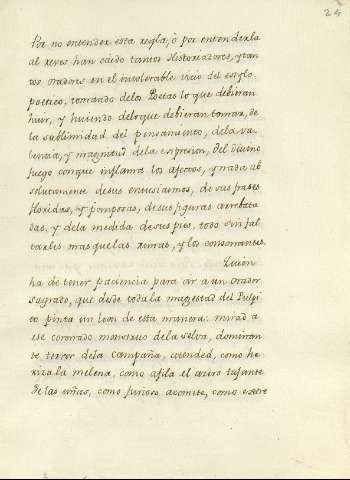 24
Por no entender esta regla, ò por entenderla
al reves han caido tantos Historiadores, y tan
tos oradores en el intolerable vicio del estylo
poetico, tomando delos Poetas lo que debieran
huir, y huiendo deloque debieran tomar, de
la sublimidad del pensamiento, dela va
lentia, y magnitud dela expresion, del divino
fuego conque inflama los afectos, y nada ab
solutamente desus entusiasmos, de sus frases
floridas, y pomposas, desus figuras arrebata
das, y dela medida desus pies, todo sin fal
tarles mas que las rimas, y los consonantes.
Quien
ha de tener paciencia para oir a un orador
sagrado, que desde toda la magestad del Pulpi
to pinta un leon de esta manera: mirad a
ese coronado monstruo dela selva, dominan
te terror dela campaña, atended, como he
riza la melena, como afila el acero tajante
de las uñas, como furioso acomete, como